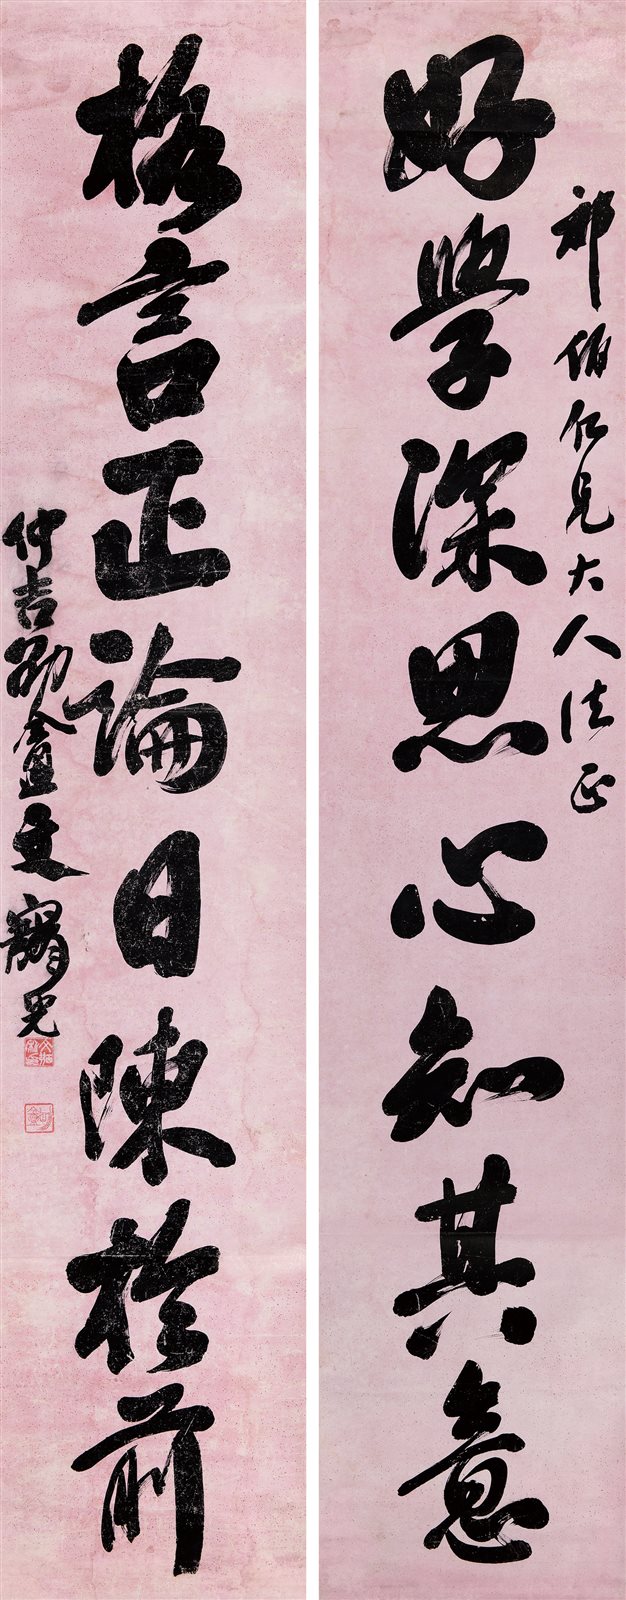 好學深思心知其意
祁伯仁兄大人法正
格言正論日陳於前
仲吉弟金文